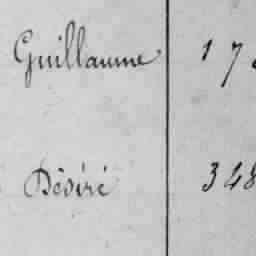 Guillaume 17
Désiré 348